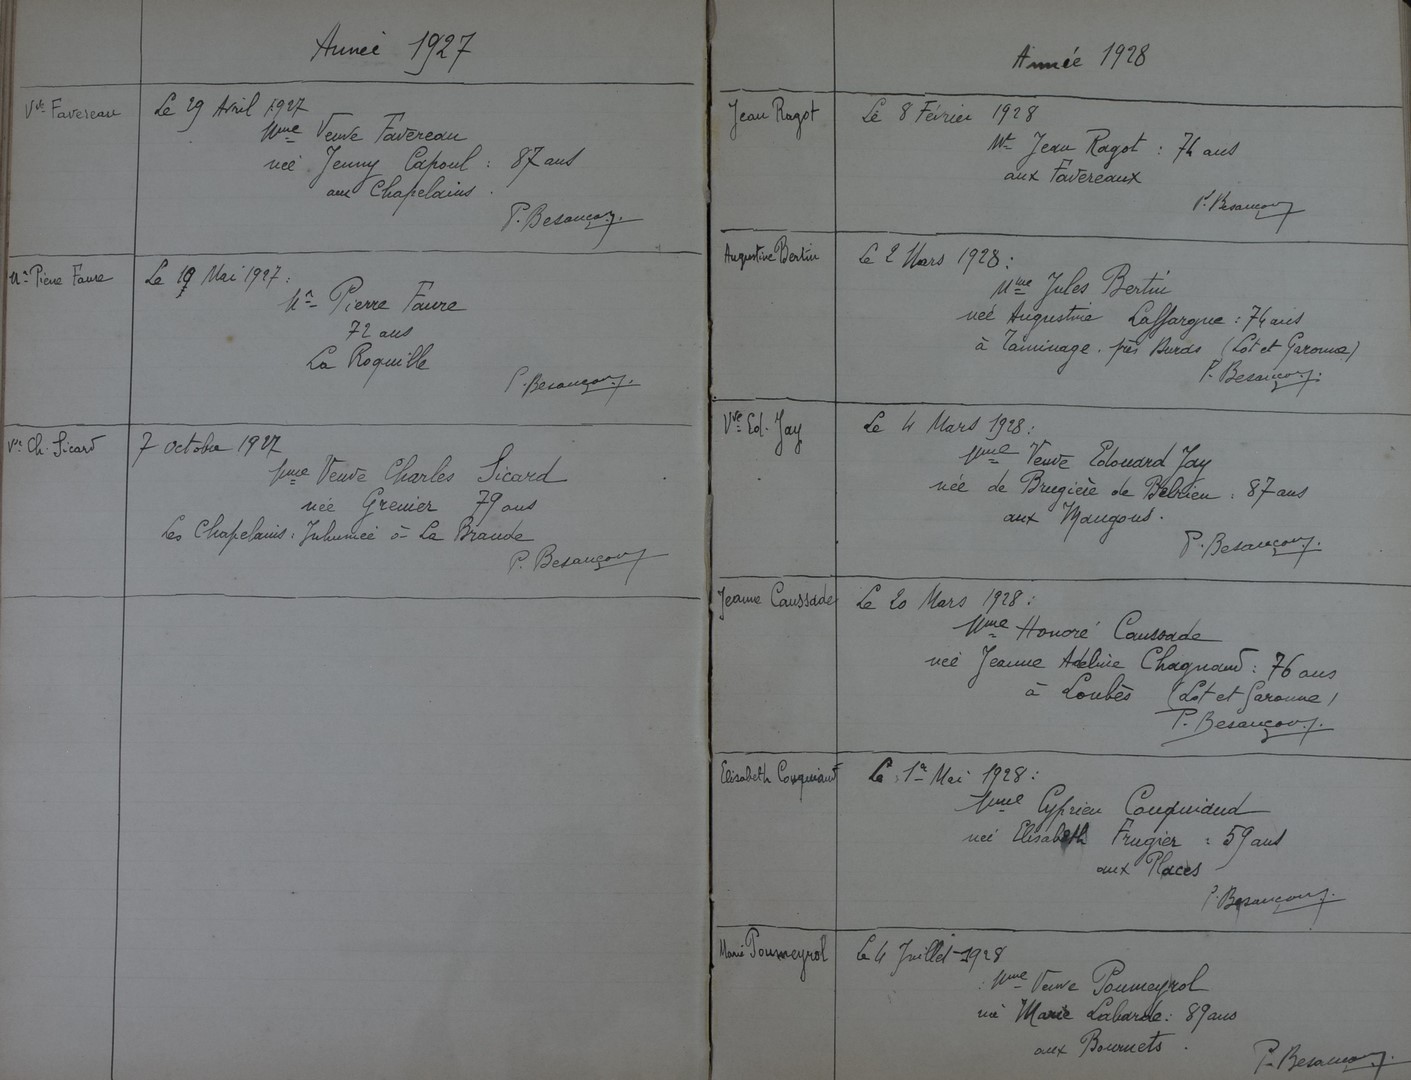 Année 1927
Vve Favereau
Le 29 Avril 1927
Mme Veuve Favereau
née Jenny Capoul : 87 ans
aux Chapelains.
P. Besançon
Mr Pierre Faure
Le 19 Mai 1927 :
Mr Pierre Faure
72 ans
La Roquille
P. Besançon
Vve Ch. Sicard
7 Octobre 1927
Mme Veuve Charles Sicard
née Grenier 79 ans
Les Chapelains : Inhumée à La Brande
P. Besançon
Année 1928
Jean Ragot
Le 8 Février 1928
Mr Jean Ragot : 74 ans
aux Favereaux
P. Besançon
Augustine Bertin
Le 2 Mars 1928 :
Mme Jules Bertin
née Augustine Laffargue : 74 ans
à près Duras (Lot et Garonne)
P. Besançon
Vve Ed. Jay
Le 4 Mars 1928 :
Mme Veuve Edouard Jay
née de Brugière de : 87 ans
aux Maugons.
P. Besançon
Jeanne Caussade
Le 20 Mars 1928 :
Mme Honoré Caussade
née Jeanne Adeline Chagnaud : 76 ans
à Loubès (Lot et Garonne)
P. Besançon
Elisabeth Couquiaud
Le 1er Mai 1928 :
Mme Cyprien Couquiaud
née Elisabeth Frugier : 59 ans
aux Places
P. Besançon
Marie Poumeyrol
Le 4 Juillet 1928
: Mme Veuve Poumeyrol
née Marie Labarde : 89 ans
aux Bournets.
P. Besançon